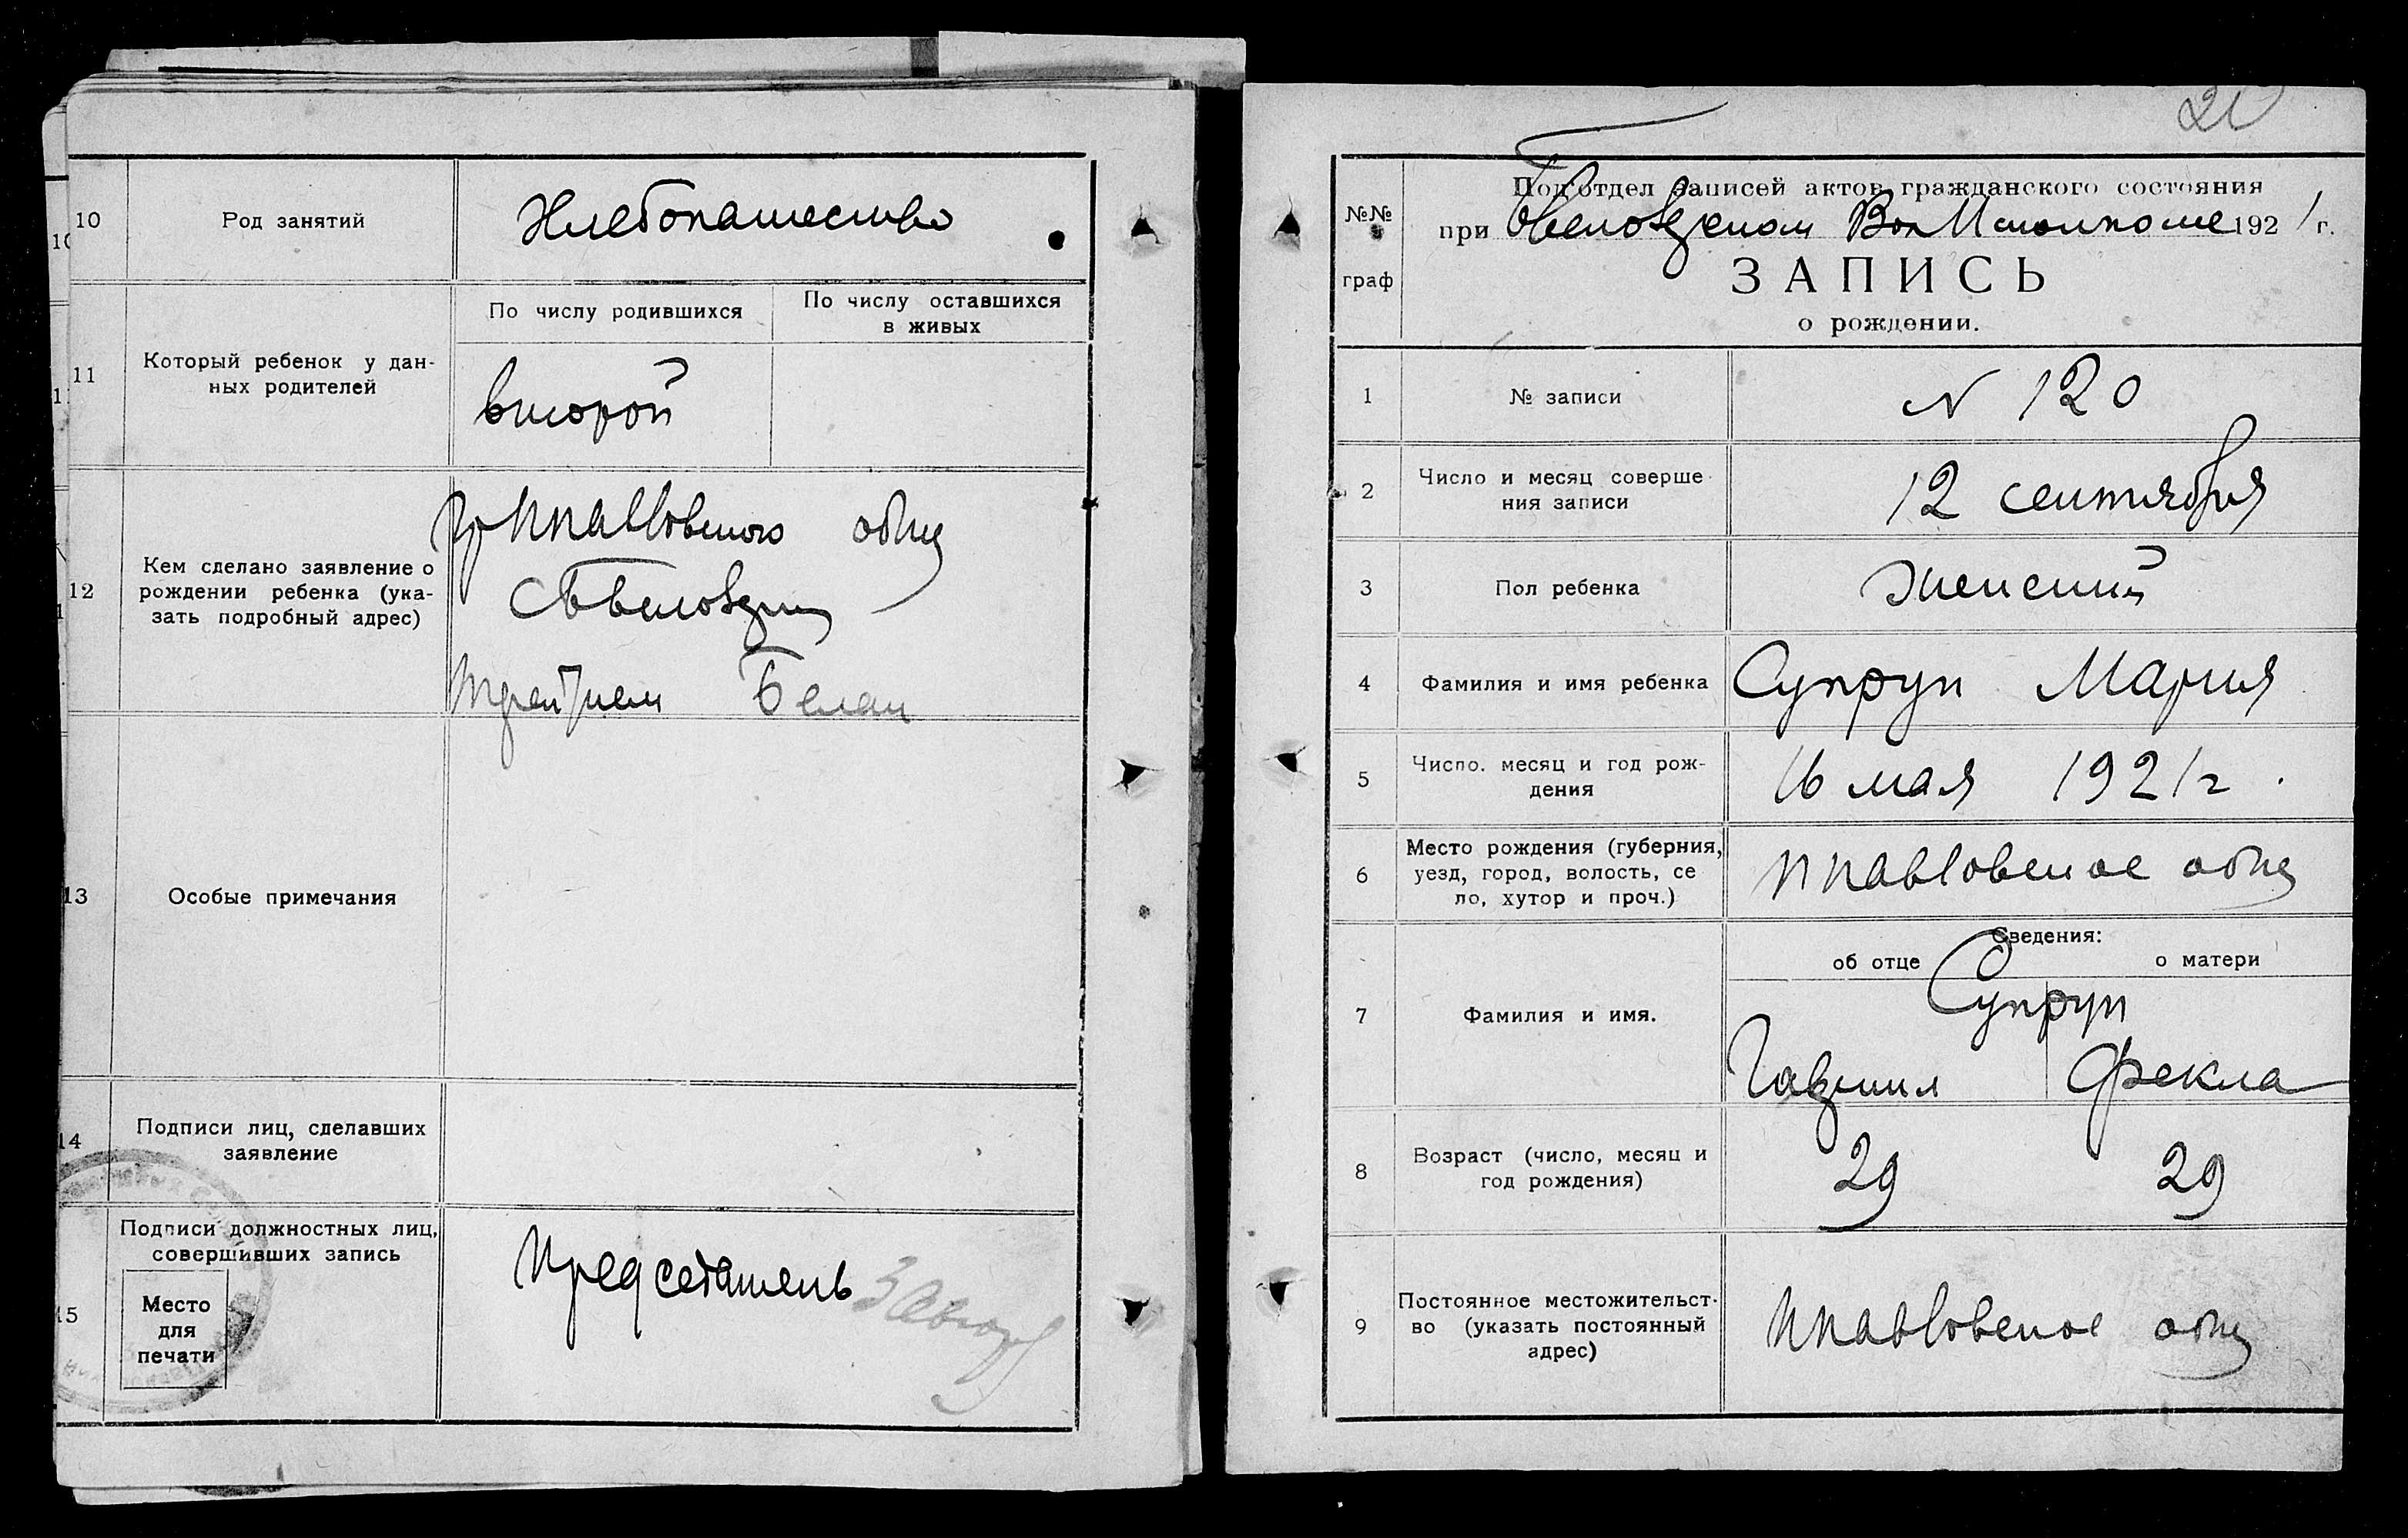 10
Род занятий
Хлебопашество
11
Который ребенок у дан-
ных родителей
По числу родившихся
По числу оставшихся
в живых
второй
12
Кем сделано заявление о
рождении ребенка (ука-
зать подробный адрес)
общ
Белан
13
Особые примечания
14
Подписи лиц, сделавших
заявление
15
Подписи должностных лиц,
совершивших запись
Место
для
печати
Председатель
№№
граф
Под'отдел записей актов гражданского состояния
при Твеловзском Вол Исполкоме 1921 г.
ЗАПИСЬ
о рождении.
1
№ записи
N 120
2
Число и месяц соверше-
ния записи
12 сентября
3
Пол ребенка
Женский
4
Фамилия и имя ребенка
Супрун Мария
5
Число. месяц и год рож-
дения
16 мая 1921 г.
6
Место рождения (губерния,
уезд, город, волость, се
ло, хутор и проч.)
Ппавловское общ
7
Фамилия и имя.
Сведения:
об отце
о матери
Супрун
Гавриил Фекла
8
Возраст (число, месяц и
год рождения)
29 29
9
Постоянное местожительст-
во (указать постоянный
адрес)
Ппавловское общ